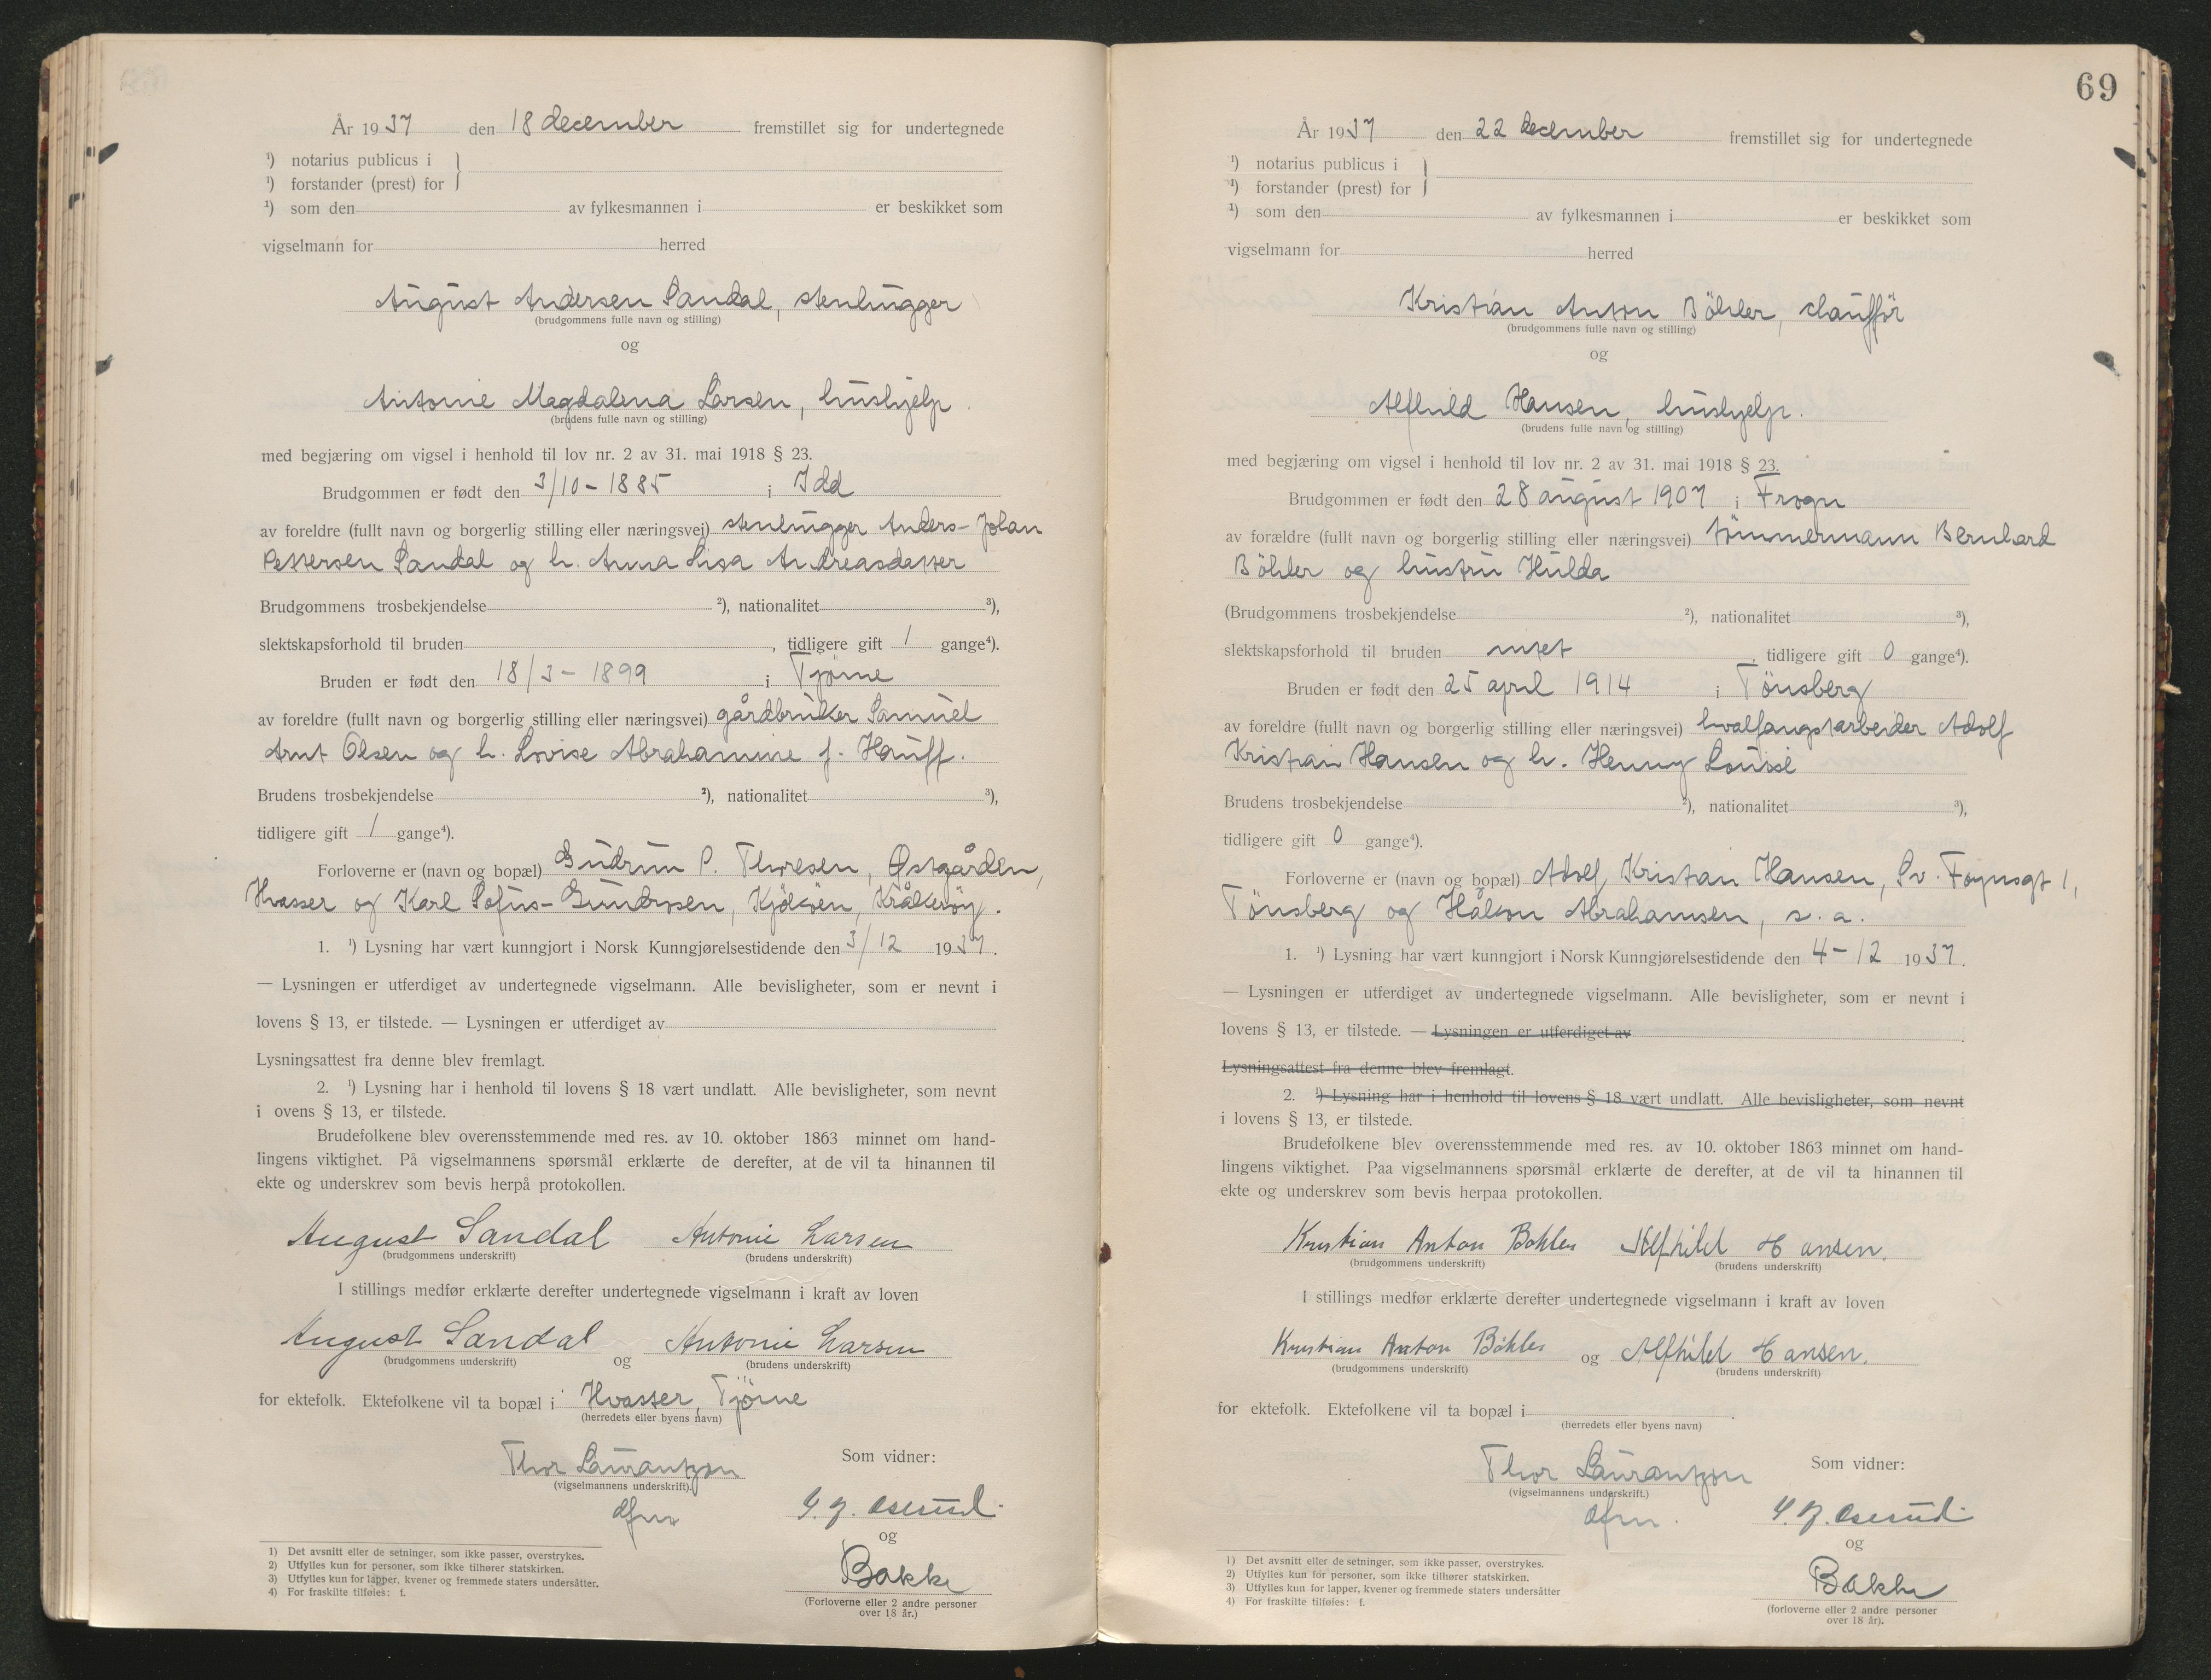 År 1937 den 18 december fremstillet sig for undertegnede
¹) notarius publicus i
¹) forstander (prest) for
¹) som den av fylkesmannen i er beskikket som
vigselmann for herred
August Andersen Sandal, stenhugger
(brudgommens fulle navn og stilling)
og
Antonie Magdalena Larsen, hushjelp
(brudens fulle navn og stilling)
med begjæring om vigsel i henhold til lov nr. 2 av 31. mai 1918 § 23.
Brudgommen er født den 3/10-1885 i Idd
av foreldre (fullt navn og borgerlig stilling eller næringsvei) stenhugger Anders-Johan
Pettersen Sandal og h. Anna Lisa Andreasdatter
Brudgommens trosbekjendelse ²), nationalitet ³),
slektskapsforhold til bruden , tidligere gift 1 gange⁴).
Bruden er født den 18/3-1899 i Tjöme
av foreldre (fullt navn og borgerlig stilling eller næringsvei) gårdbruker Samuel
Arnt Olsen og h. Lovise Abrahamine f. Hauff.
Brudens trosbekjendelse ²), nationalitet ³),
tidligere gift 1 gange⁴).
Forloverne er (navn og bopæl) Gudrun S. Thoresen, Østgården,
Hvasser og Karl Sofus-Gundrosen, Kjölöen, Kråkeröy.
1. ¹) Lysning har vært kunngjort i Norsk Kunngjørelsestidende den 3/12 1937.
— Lysningen er utferdiget av undertegnede vigselmann. Alle bevisligheter, som er nevnt i
lovens § 13, er tilstede. — Lysningen er utferdiget av
Lysningsattest fra denne blev fremlagt.
2. ¹) Lysning har i henhold til lovens § 18 vært undlatt. Alle bevisligheter, som nevnt
i ovens § 13, er tilstede.
Brudefolkene blev overensstemmende med res. av 10. oktober 1863 minnet om hand-
lingens viktighet. På vigselmannens spørsmål erklærte de derefter, at de vil ta hinannen til
ekte og underskrev som bevis herpå protokollen.
August Sandal Antonie Larsen
(brudgommens underskrift) (brudens underskrift)
I stillings medfør erklærte derefter undertegnede vigselmann i kraft av loven
August Sandal og Antonie Larsen
(brudgommens underskrift) (brudens underskrift)
for ektefolk. Ektefolkene vil ta bopæl i Hvasser, Tjöme
(herredets eller byens navn)
Thor Laurantzon Som vidner:
(vigselmannens underskrift).
dfm
Oserud
og
Bakke
(Forloverne eller 2 andre personer
over 18 år.)
1) Det avsnitt eller de setninger, som ikke passer, overstrykes.
2) Utfylles kun for personer, som ikke tilhører statskirken.
3) Utfylles kun for lapper, kvener og fremmede staters undersåtter.
4) For fraskilte tilføies: f.
69
År 1937 den 22 december fremstillet sig for undertegnede
¹) notarius publicus i
¹) forstander (prest) for
¹) som den av fylkesmannen i er beskikket som
vigselmann for herred
Kristian Anton Böhler, chaufför
(brudgommens fulle navn og stilling)
og
Alfhild Hansen, hushjelp.
(brudens fulle navn og stilling)
med begjæring om vigsel i henhold til lov nr. 2 av 31. mai 1918 § 23.
Brudgommen er født den 28 august 1907 i Frogn
av forældre (fullt navn og borgerlig stilling eller næringsvei) tömmermann Bernhard
Böhler og hustru Hulda
(Brudgommens trosbekjendelse ²), nationalitet ³),
slektskapsforhold til bruden intet , tidligere gift 0 gange⁴).
Bruden er født den 25 april 1914 i Tönsberg
av foreldre (fullt navn og borgerlig stilling eller næringsvei) hvalfangstarbeider Adolf
Kristian Hansen og h. Henny Louise
Brudens trosbekjendelse ²), nationalitet ³),
tidligere gift 0 gange⁴).
Forloverne er (navn og bopæl) Adolf Kristian Hansen, Sv. Foynsgt 1,
Tönsberg og Håkon Abrahamsen, s. a.
1. ¹) Lysning har vært kunngjort i Norsk Kunngjørelsestidende den 4-12 1937.
— Lysningen er utferdiget av undertegnede vigselmann. Alle bevisligheter, som er nevnt i
lovens § 13, er tilstede. — Lysningen er utferdiget av
Lysningsattest fra denne blev fremlagt.
2. ¹) Lysning har i henhold til lovens § 18 vært undlatt. Alle bevisligheter, som nevnt
i lovens § 13, er tilstede.
Brudefolkene blev overensstemmende med res. av 10. oktober 1863 minnet om hand-
lingens viktighet. Paa vigselmannens spørsmål erklærte de derefter, at de vil ta hinannen til
ekte og underskrev som bevis herpaa protokollen.
Kristian Anton Bøhler Alfhild Hansen.
(brudgommens underskrift) (brudens underskrift)
I stillings medfør erklærte derefter undertegnede vigselmann i kraft av loven
Kristian Anton Bøhler og Alfhild Hansen.
(brudgommens underskrift) (brudens underskrift)
for ektefolk. Ektefolkene vil ta bopæl i
(herredets eller byens navn)
Thor Laurantzon Som vidner:
(vigselmannens underskrift.)
dfm.
Oserud
og
Bakke
(forloverne eller 2 andre personer
over 18 år).
1) Det avsnitt eller de setninger, som ikke passer, overstrykes.
2) Utfylles kun for personer, som ikke tilhører statskirken.
3) Utfylles kun for lapper, kvener og fremmede staters undersåtter
4) For fraskilte tilføies: f.